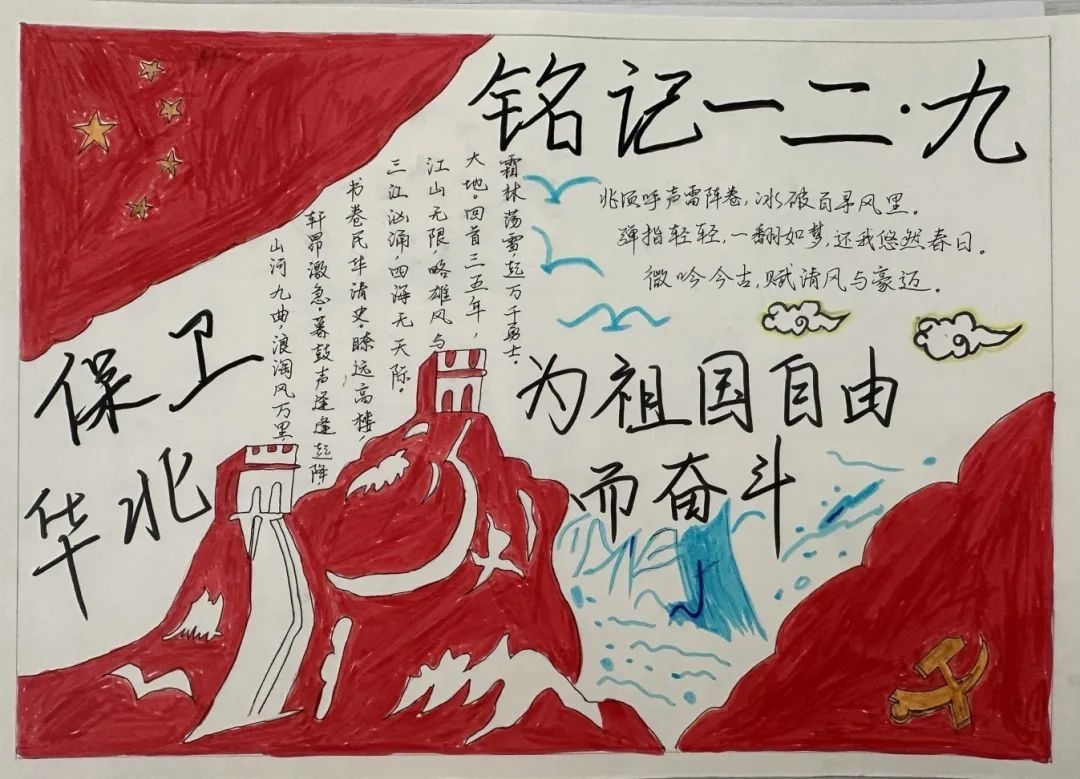 铭记一二·九
霜林荡雪,起万千勇士。
大地。回首三五年,
江山无限,略雄风与
三江汹涌,四海无天际。
书卷民华清史。瞭远高楼,
轩昂激急。暮鼓声逢逢起降
山河九曲,浪淘风万里,
兆顷呼声雷阵卷,冰破百寻风里。
弹指轻轻,一翻如梦,还我悠然春日。
微吟今古,赋清风与豪迈。
保卫
华北
为祖国自由
而奋斗